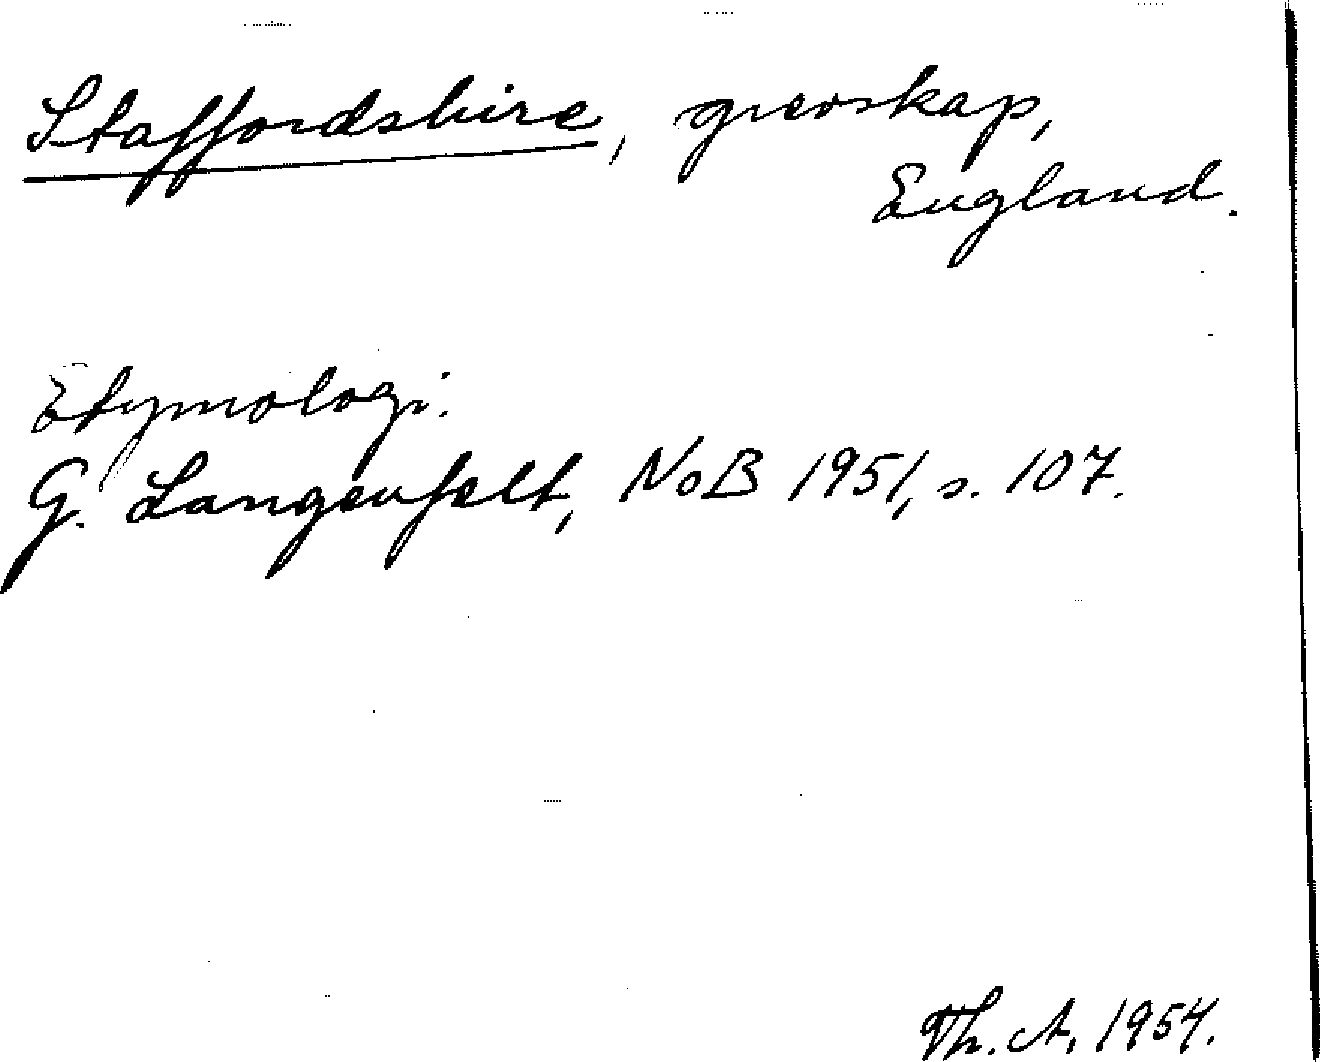 Staffordshire, grevskap,
England.
Etymologi.
G. Langenfelt, NoB 1951, s. 107.
Th. A, 1954.